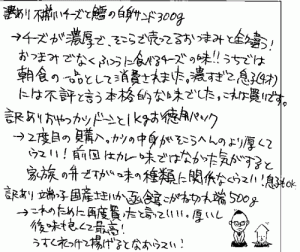 訳あり不揃いチーズと鱈の白身サンド300g
→チーズが濃厚で、そこらで売ってるおつまみと全違う!
おつまみでなくふつうに食べるチーズの味!!うちでは
朝食の一品として消費されました。濃すぎて、息子(4才)
には不評と言う本格的な味でした。これは買いです。
訳ありおやつカリドーナツ1kgお徳用パック
→2度目の購入。カリの中身がそこらへんのより厚くて
うまい!前回はカレー味ではなかった気がすると
家族の弁ですが味の種類に関係なくうまい!息子もok.
訳あり端っこ国産するいか函館こがねさきいか端500g
→これのために再度買ったと言っていい。厚いし
後味も良くて最高!
うすくねつけて揚げるとなおうまい!